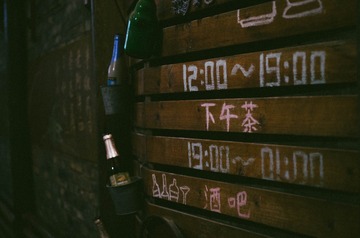 12:00～19:00
下午茶
19:00～01:00
酒吧